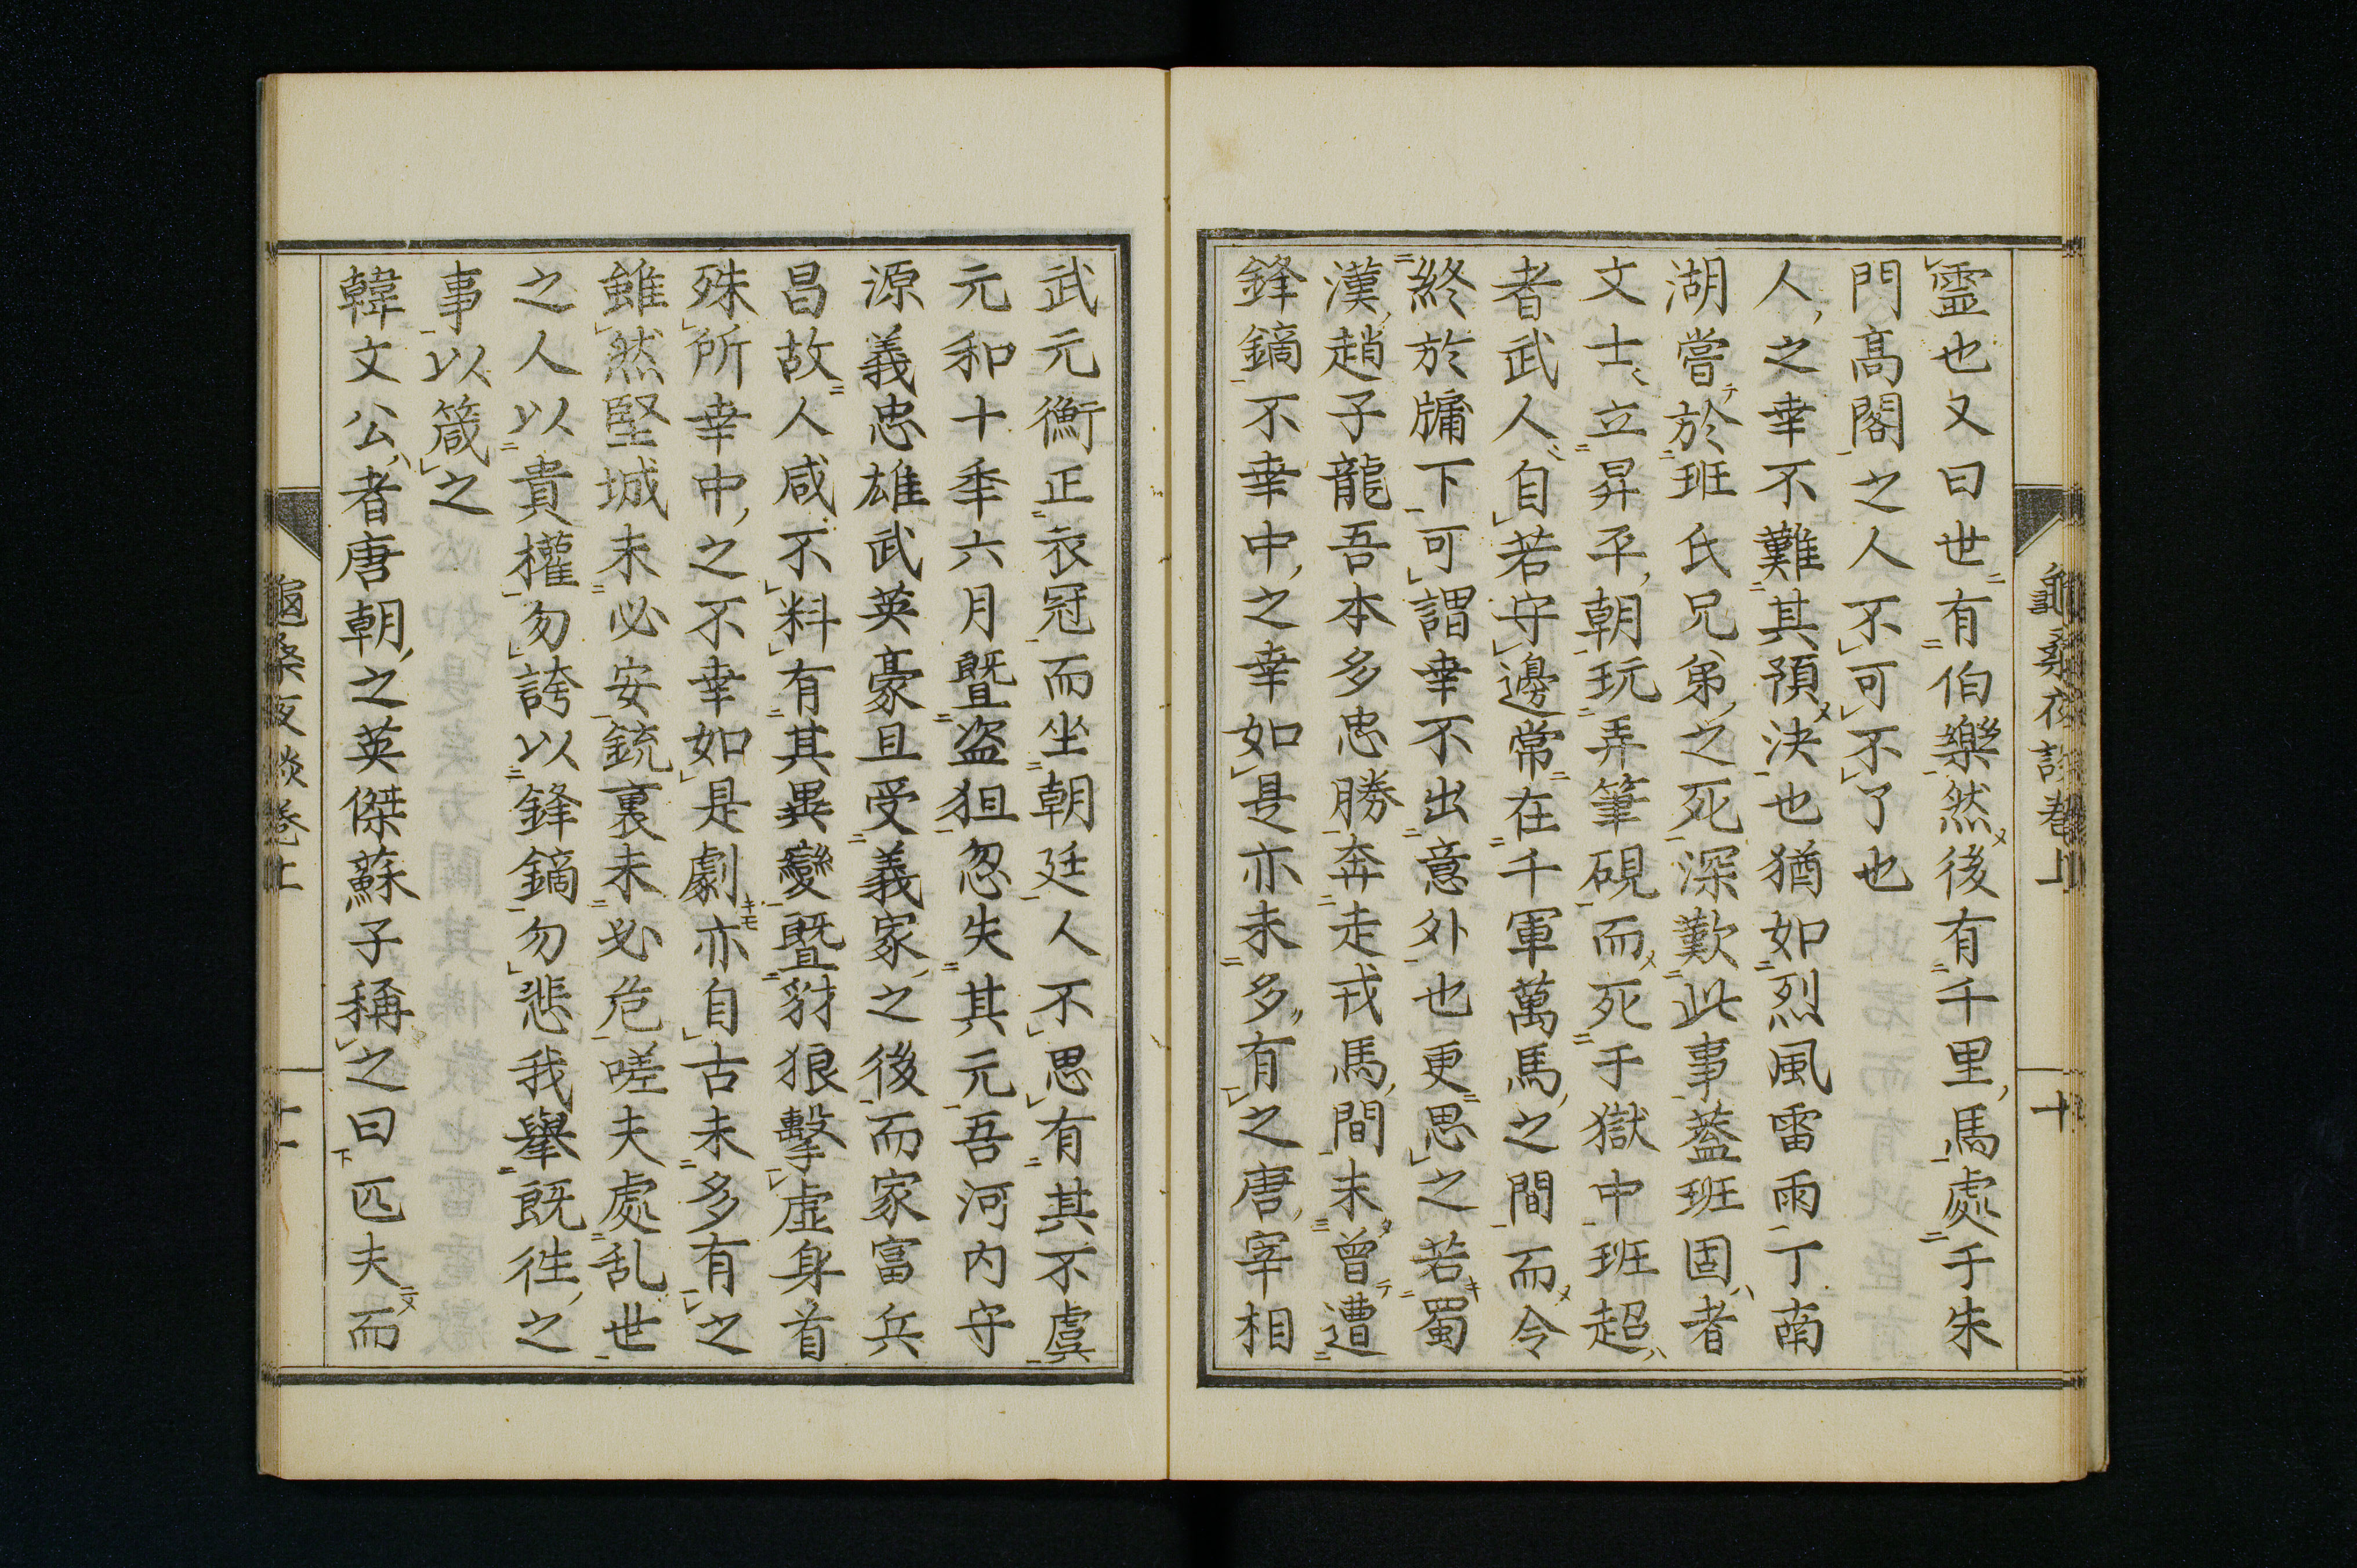 龜桑夜談卷上
十
霊也又曰世有伯樂然後有千里馬處于朱
門高閣之人不可不了也
人之幸不難其預決也猶如烈風雷雨丁南
湖嘗於班氏兄弟之死深歎此事葢班固者
文士立昇平朝玩弄筆硯而死于獄中班超
者武人自若守邊常在千軍萬馬之間而令
終於牗下可謂幸不出意外也更思之若蜀
漢趙子龍吾本多忠勝奔走戎馬間未曾遭
鋒鏑不幸中之幸如是亦未多有之唐宰相
武元衡正衣冠而坐朝廷人不思有其不虞
元和十年六月暨盗狙忽失其元吾河内守
源義忠雄武英豪且受義家之後而家富兵
昌故人咸不料有其異變暨豺狼擊虚身首
殊所幸中之不幸如是劇亦自古未多有之
雖然堅城未必安銃裏未必危嗟夫處乱世
之人以貴權勿誇以鋒鏑勿悲我舉既徃之
事以箴之
韓文公者唐朝之英傑蘇子稱之曰匹夫而
龜桑夜談卷上
十一